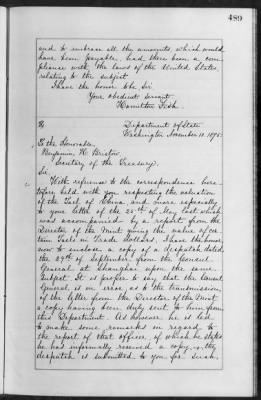 489
and to embrace all the amounts, which would
have been payable, had there been a com-
pliance with the laws of the United States,
relating to the subject.
I have the honor to be Sir
Your obedient servant
Hamilton Fish.
Department of State
Washington November 10. 1875.
To the Honorable,
Benjamin H. Bristow,
Secretary of the Treasury.
Sir
With reference to the correspondence here-
tofore held with you, respecting the valuation
of the Tael of China and more especially
to your letter of the 25th of May last which
was accompanied by a report from the
Director of the Mint giving the value of cer-
tain Taels in Trade Dollars, I have the honor
now to enclose a copy of a despatch dated
the 29th of September from the Consul
General at Shanghai upon the same
subject. It is proper to say that the Consul
General is in error as to the transmission
of the letter from the Director of the Mint
a copy having been duly sent to him from
this Department. As however he is led
to make some remarks in regard to
the report of that officer, of which he states
he has informally received a copy, the
despatch is submitted to you for such